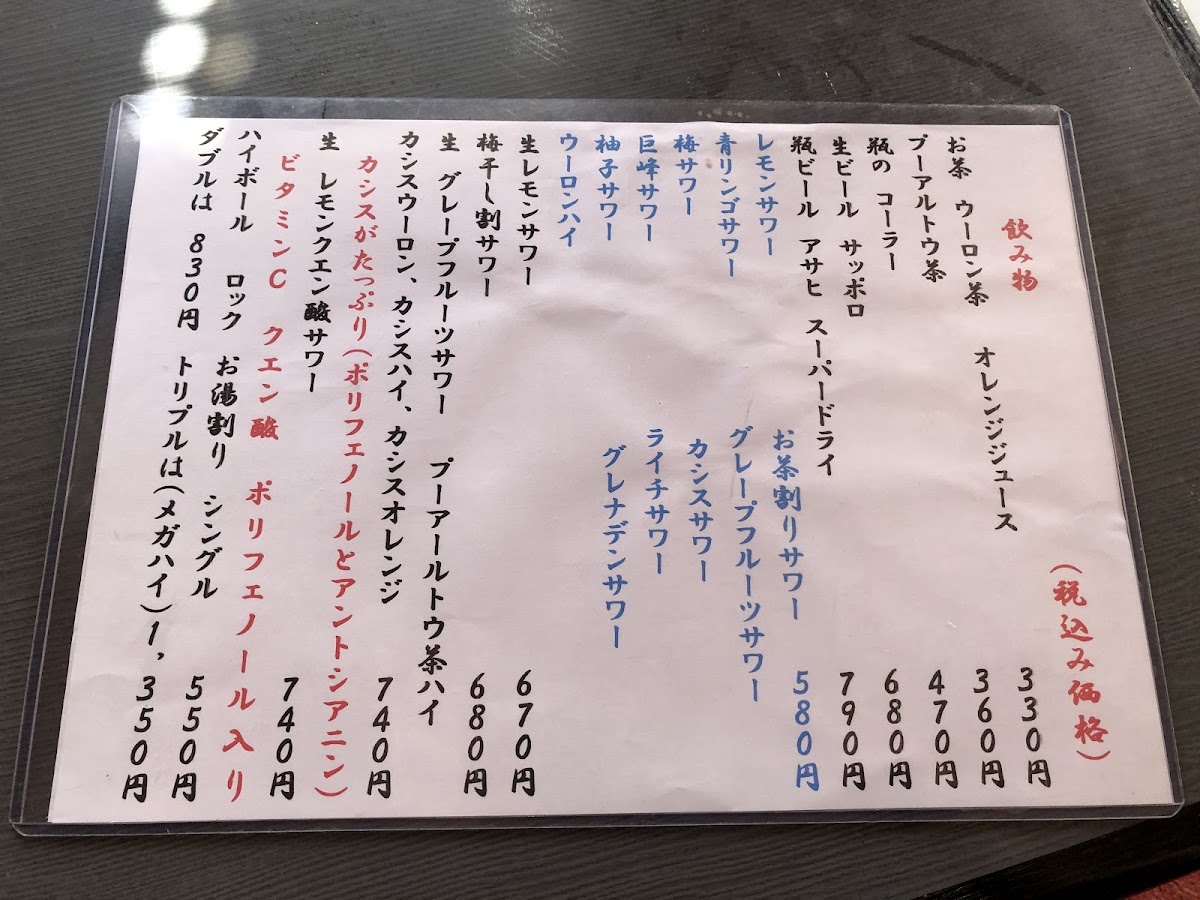 飲み物 (税込み価格)
お茶 ウーロン茶 オレンジジュース 330円
プーアルトウ茶 360円
瓶の コーラー 470円
生ビール サッポロ 680円
瓶ビール アサヒ スーパードライ 790円
レモンサワー お茶割りサワー 580円
青リンゴサワー グレープフルーツサワー
梅サワー カシスサワー
巨峰サワー ライチサワー
柚子サワー グレナデンサワー
ウーロンハイ
生レモンサワー 670円
梅干し割サワー 680円
生 グレープフルーツサワー プーアールトウ茶ハイ
カシスウーロン、カシスハイ、カシスオレンジ 740円
カシスがたっぷり(ポリフェノールとアントシアニン)
生 レモンクエン酸サワー 740円
ビタミンC クエン酸 ポリフェノール入り
ハイボール ロック お湯割り シングル 550円
ダブルは 830円 トリプルは(メガハイ)1,350円